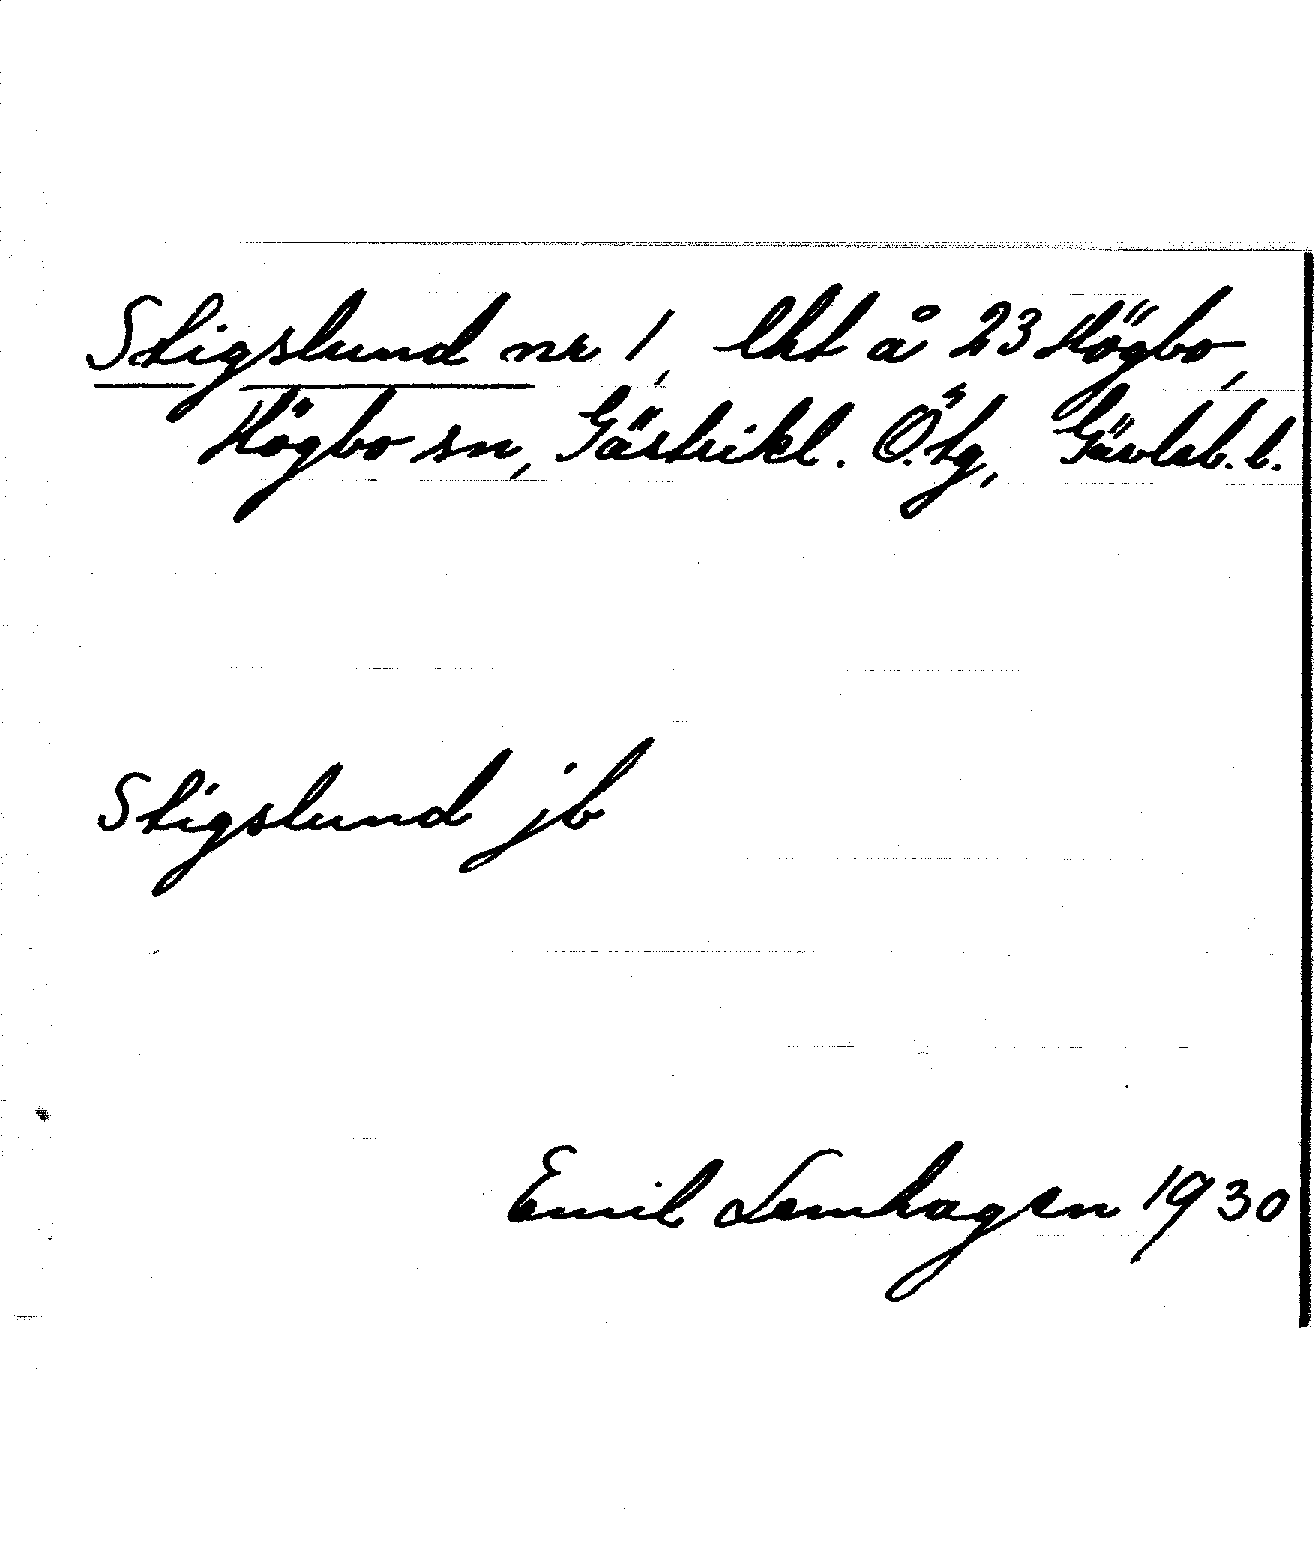 Stigslund nr 1, lht å 23 Högbo,
Högbo sn, Gästrikl. Ö. tg, Gävleb. l.
Stigslund jb
Emil Lemhagen 1930